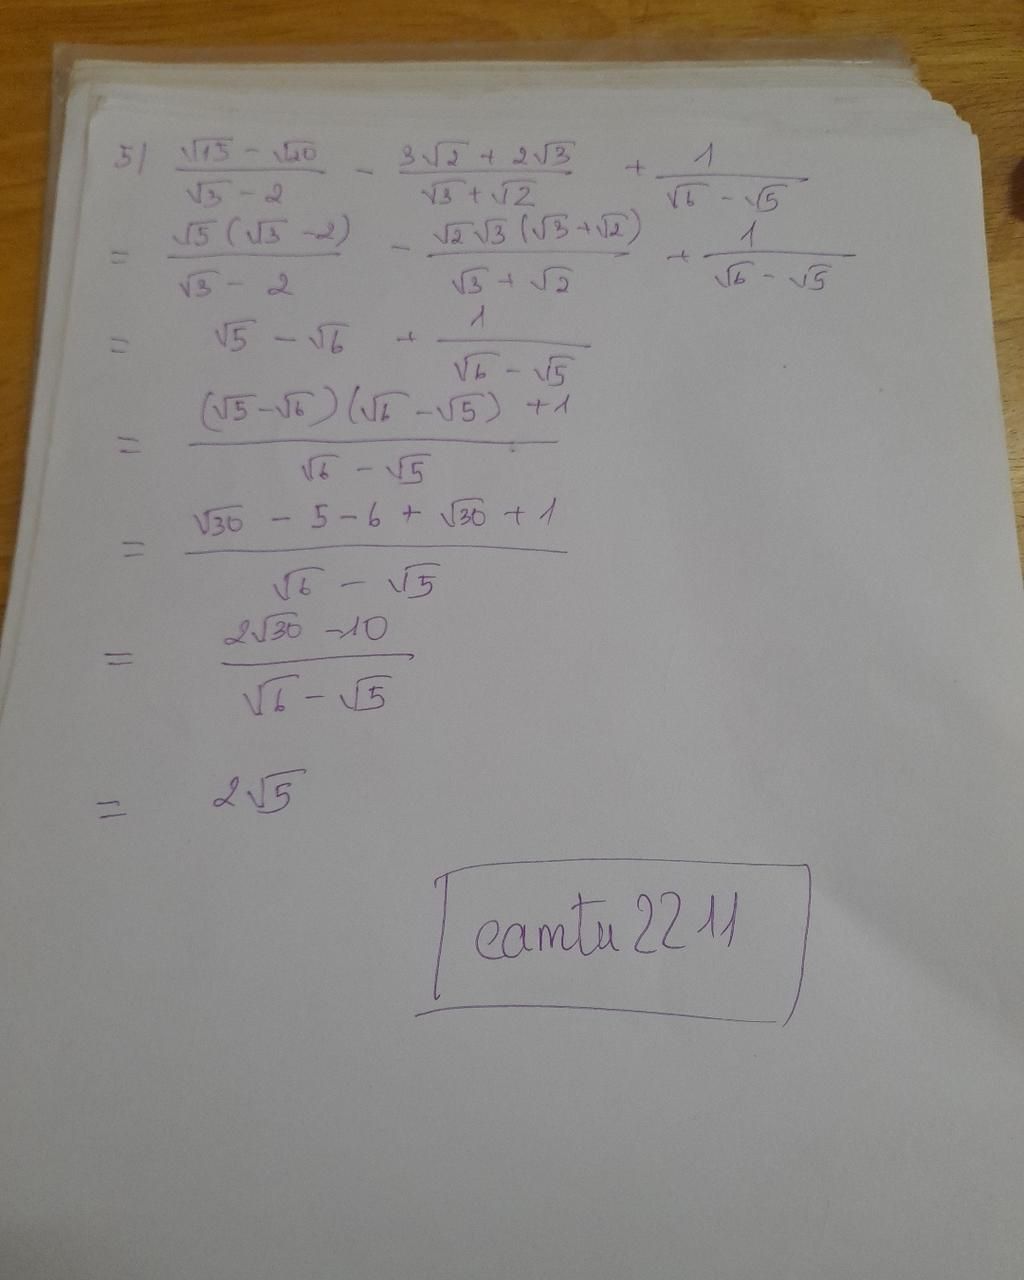 5) (√15 - √20)/(√3 - 2) - (3√2 + 2√3)/(√3 + √2) + 1/(√6 - √5)
= (√5(√3 - 2))/(√3 - 2) - (√2√3(√3 + √2))/(√3 + √2) + 1/(√6 - √5)
= √5 - √6 + 1/(√6 - √5)
= ((√5 - √6)(√6 - √5) + 1)/(√6 - √5)
= (√30 - 5 - 6 + √30 + 1)/(√6 - √5)
= (2√30 - 10)/(√6 - √5)
= 2√5
camtu2211